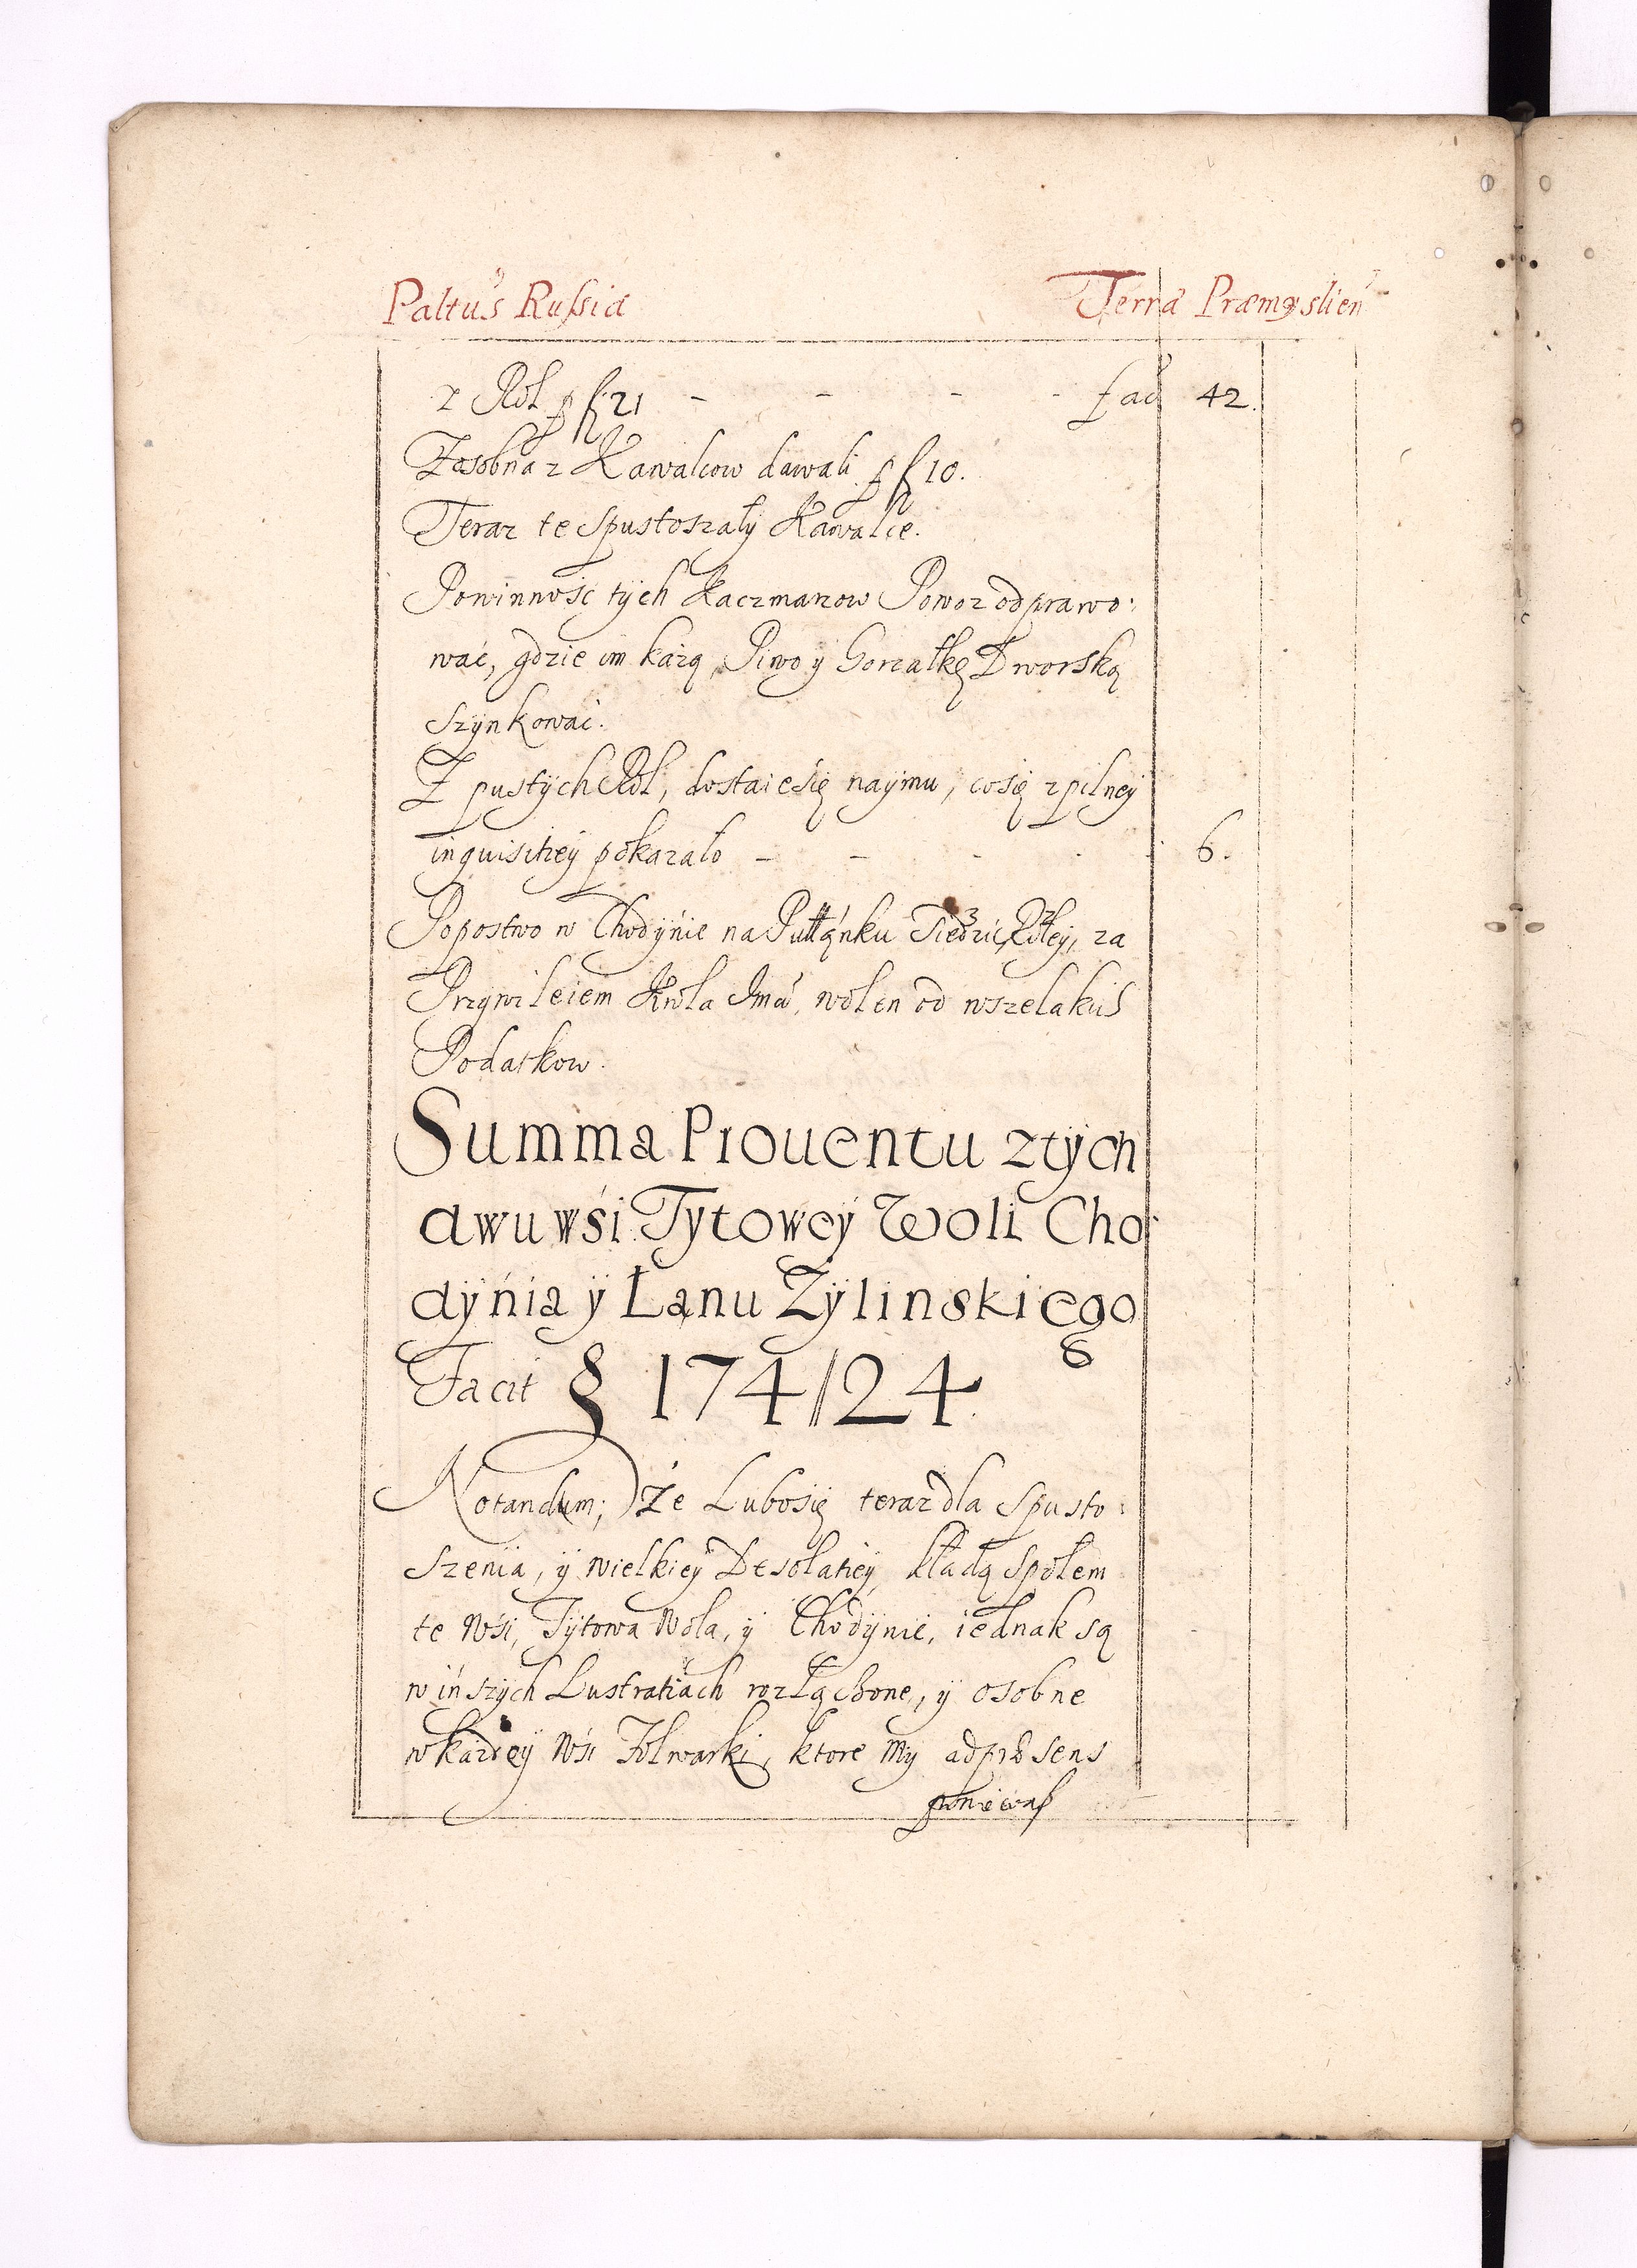 Paltus Russiæ Terræ Præmysslien
z Rol p fl 21 - - - - fac 42.
Zasobna z Kawalcow dawali p fl 10.
Teraz te spustoszały Kawalce.
Powinność tÿch Kaczmarzow Powoz odprawo:
wać, gdzie im każą, Piwo ÿ Gorzałkę Dworską
szÿnkować.
Z pustÿch Rol, dostaie się naÿmu, co się z pilneÿ
inquisitieÿ pokazało - - - - 6.
Popostwo w Chodÿnie na Pułłanku siedzi Roleÿ, za
Przÿwileiem Krola Jmci, wolen od wszelakich
Podatkow.
Summa Prouentu z tÿch
dwu wśi Tytoweÿ Woli Cho
dÿnia ÿ Łanu Żÿlinskiego
Facit § 174//24.
Notandum; że Lubo się teraz dla Spusto:
szenia, ÿ wielkieÿ Desolatieÿ, kładą społem
te Wśi, Tÿtowa Wola, ÿ Chodÿnie, iednak są
w inszÿch Lustratiach rozłączone, ÿ osobne
w każdeÿ Wśi Folwarki, ktore Mÿ ad præsens
poniewasz